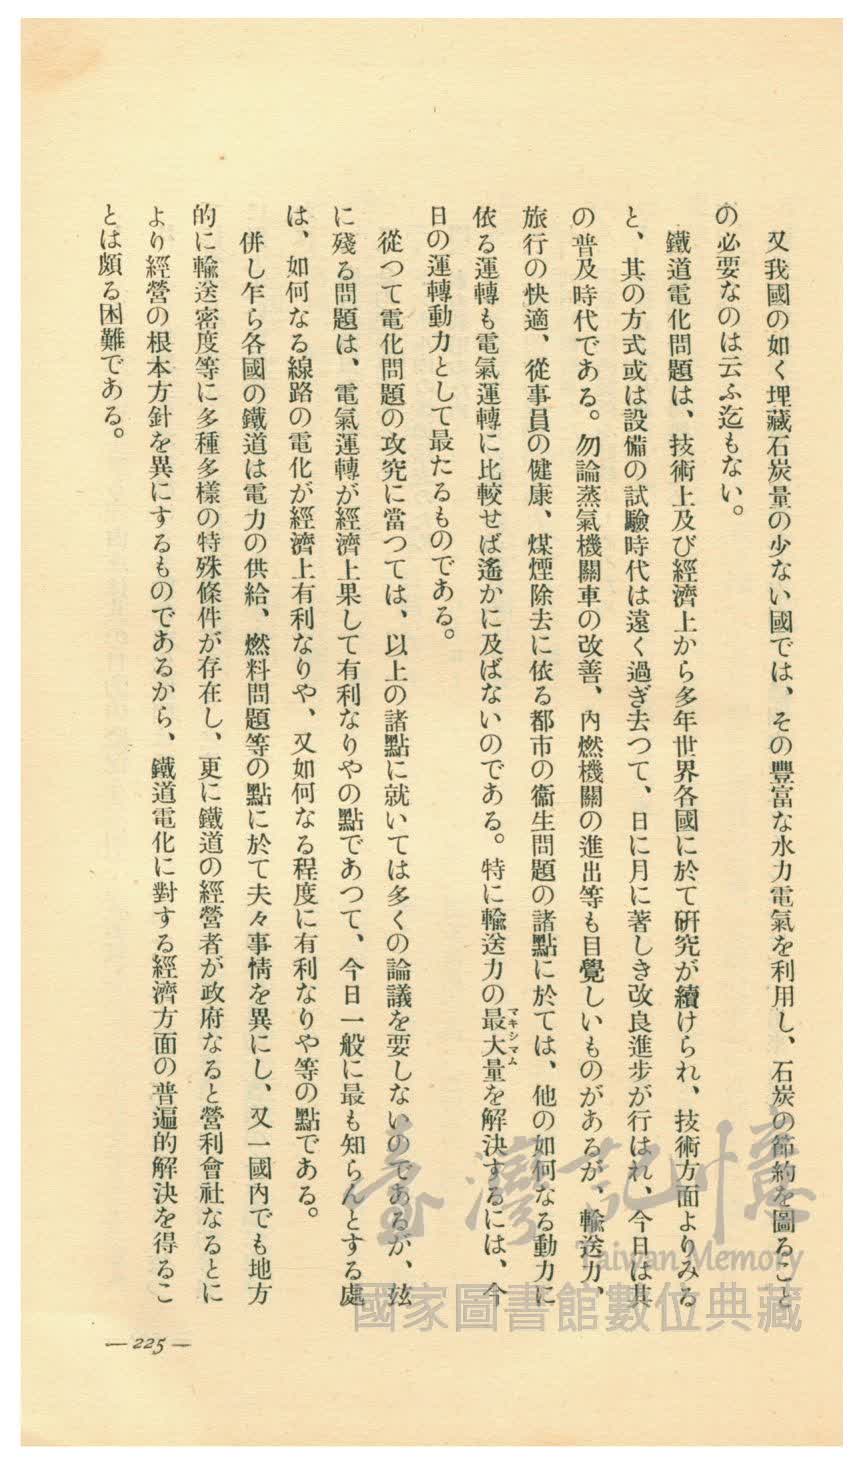 又我國の如く埋藏石炭量の少ない國では、その豐富な水力電氣を利用し、石炭の節約を圖ること
の必要なのは云ふ迄もない。
鐵道電化問題は、技術上及び經濟上から多年世界各國に於て研究が續けられ、技術方面よりみる
と、其の方式或は設備の試驗時代は遠く過ぎ去つて、日に月に著しき改良進步が行はれ、今日は其
の普及時代である。勿論蒸氣機關車の改善、內燃機關の進出等も目覺しいものがあるが、輸送力、
旅行の快適、從事員の健康、煤煙除去に依る都市の衞生問題の諸點に於ては、他の如何なる動力に
依る運轉も電氣運轉に比較せば遙かに及ばないのである。特に輸送力の最大量を解決するには、今
マキシマム
日の運轉動力として最たるものである。
從つて電化問題の攻究に當つては、以上の諸點に就いては多くの論議を要しないのであるが、玆
に殘る問題は、電氣運轉が經濟上果して有利なりやの點であつて、今日一般に最も知らんとする處
は、如何なる線路の電化が經濟上有利なりや、又如何なる程度に有利なりや等の點である。
併し乍ら各國の鐵道は電力の供給、燃料問題等の點に於て夫々事情を異にし、又一國內でも地方
的に輸送密度等に多種多樣の特殊條件が存在し、更に鐵道の經營者が政府なると營利會社なるとに
より經營の根本方針を異にするものであるから、鐵道電化に對する經濟方面の普遍的解決を得るこ
とは頗る困難である。
— 225 —
臺灣記憶
Taiwan Memory
國家圖書館數位典藏